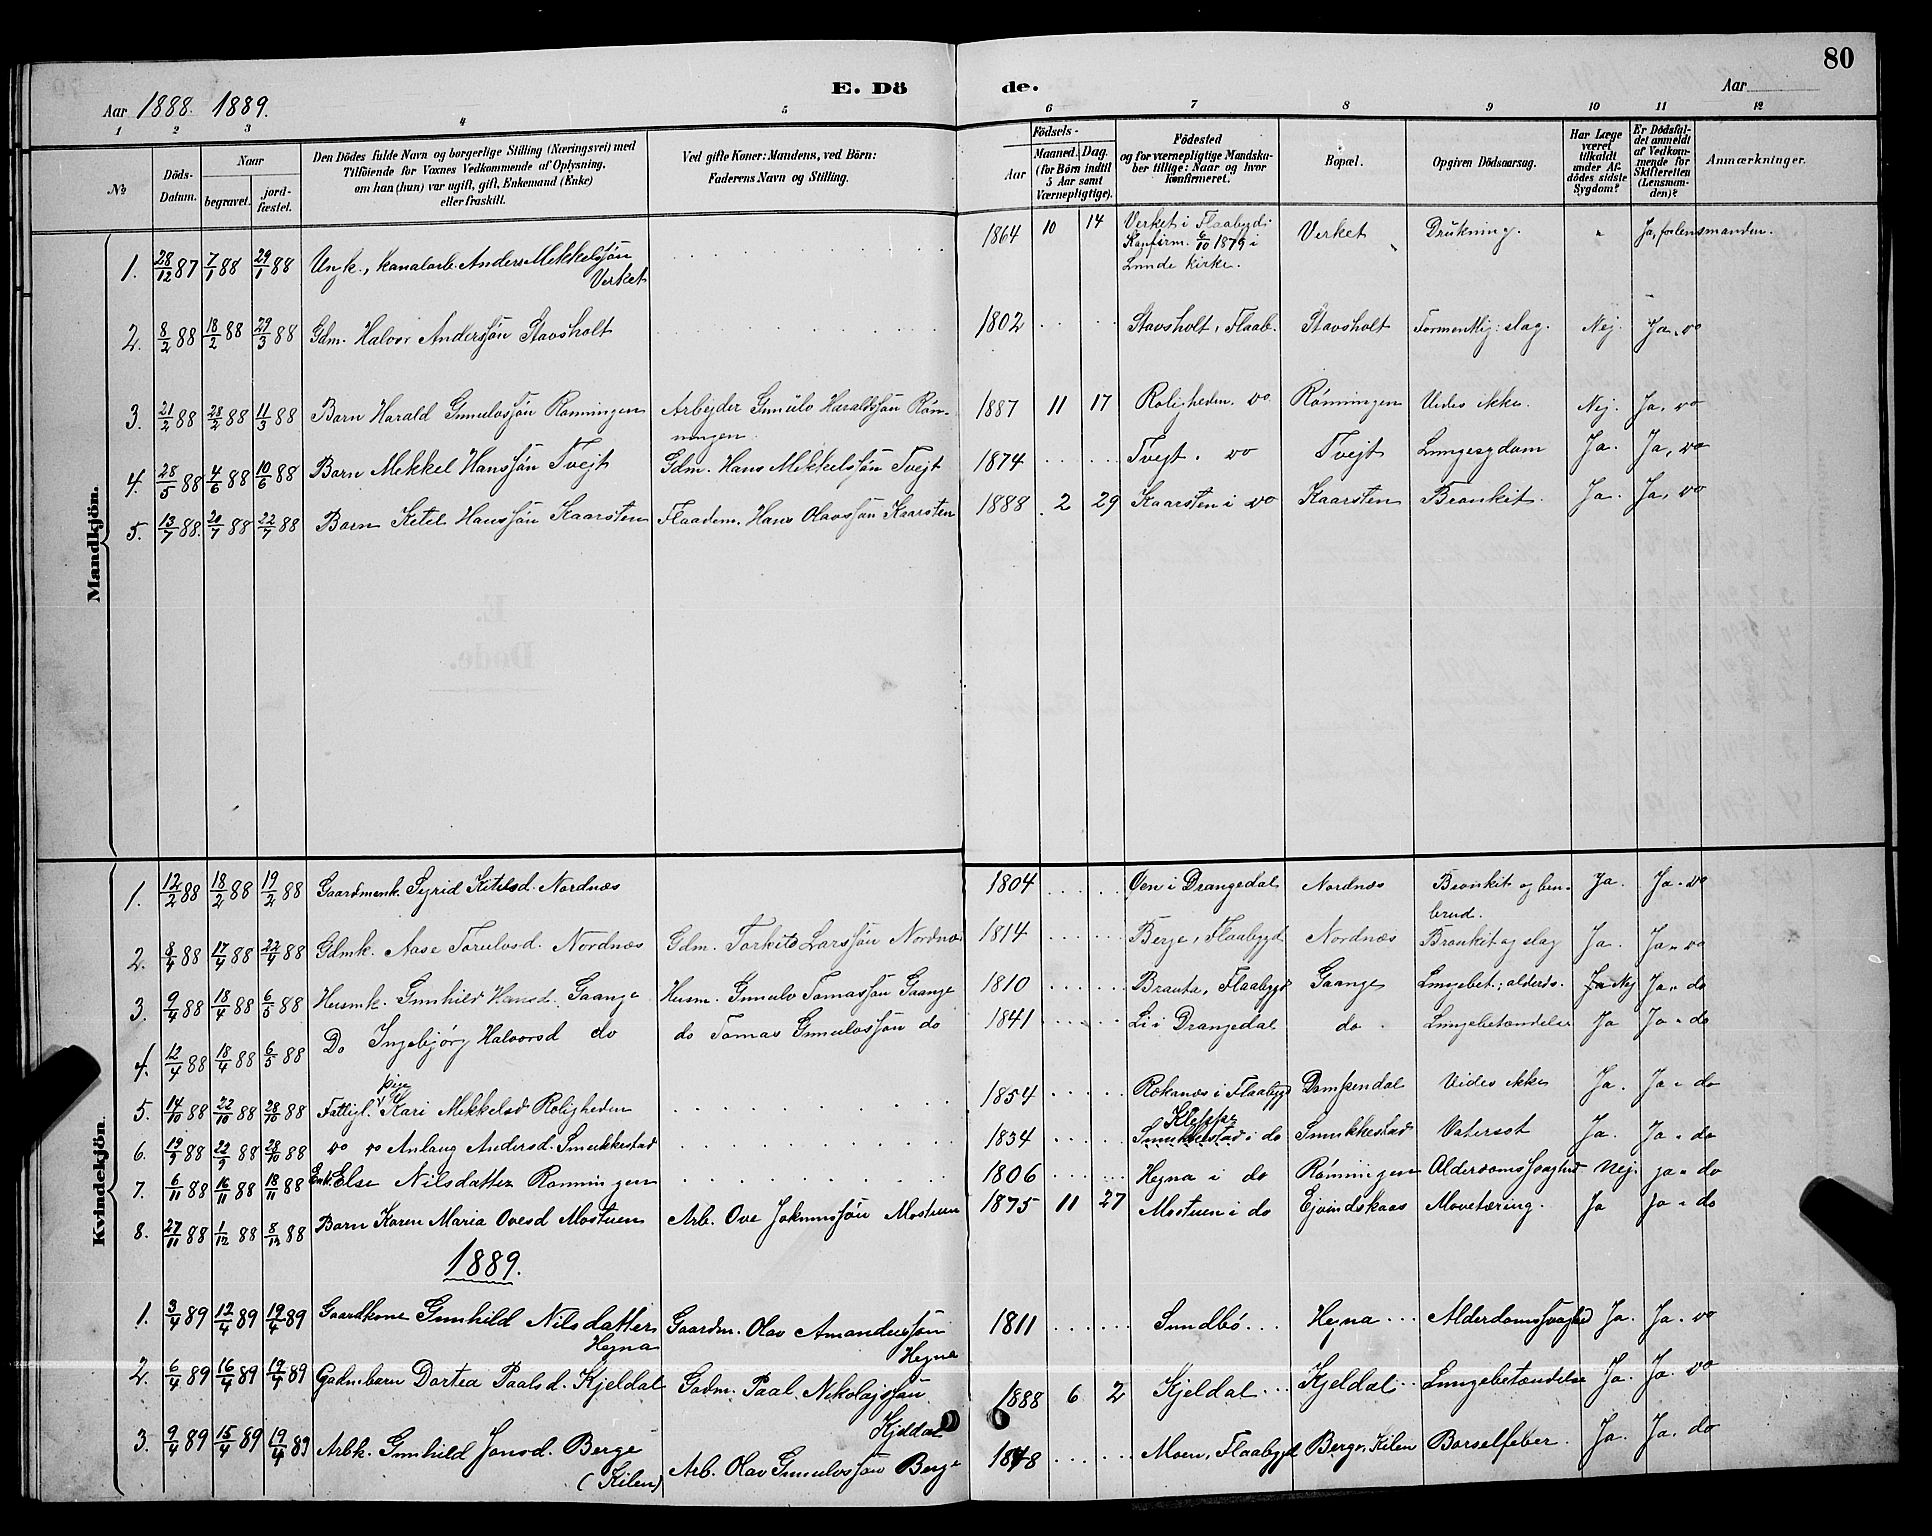 80
E. Dö de.
Aar 1888. 1889.
Aar
1 2 3 4 5 6 7 8 9 10 11 12
No
Döds-Datum.
Naar
begravet.
jord-fæstet.
Den Dödes fulde Navn og borgerlige Stilling (Næringsvei) med
Tilföiende for Voxnes Vedkommende af Oplysning,
om han (hun) var ugift, gift, Enkemand (Enke)
eller fraskilt.
Ved gifte Koner: Mandens, ved Börn:
Faderens Navn og Stilling.
Födsels-
Aar
Maaned. Dag.
(for Börn indtil
5 Aar samt
Værnepligtige).
Födested
og for værnepligtige Mandska-
ber tillige: Naar og hvor
konfirmeret.
Bopæl.
Opgiven Dödsaarsag.
Har Læge
været
tilkaldt
under Af-
dödes sidste
Sygdom?
Er Dödsfal-
det anmeldt
af Vedkom-
mende for
Skifteretten
(Lensman-
den)?
Anmærkninger.
Mandkjön.
1. 28/12 87 7/1 88 29/1 88 Ungk., kanalarb. Anders Mikkelssön Verket 1864 10 14 Verket i Flaabygd. Konfirm. 6/10 1879 i Lunde kirke. Verket Drukning. " Ja, for lensmanden.
2. 8/2 88 18/2 88 29/3 88 Gdm. Halvor Anderssön Stavsholt 1802 Stavsholt, Flaab. Stavsholt slag. Nej. Ja, do
3. 21/2 88 28/2 88 11/3 88 Barn Harald Gunulvssön Rönningen Arbejder Gunulv Haraldssön Rön-
ningen 1887 11 17 Roligheden. do Rönningen Vides ikke. Nej. Ja, do
4. 28/5 88 4/6 88 10/6 88 Barn Mikkel Hanssön Tvejt Gdm. Hans Mikkelssön Tvejt 1874 Tvejt. do Tvejt Lungesygdom Ja. Ja, do
5. 13/7 88. 20/7 88 22/7 88 Barn Ketil Hanssön Kaarsten Flaadem. Hans Olavssön Kaarsten 1888 2 29 Kaarsten i do Kaarsten Bronkit. Ja. Ja, do
Kvindekjön.
1. 12/2 88 18/2 88 19/2 88 Gaardmenk. Sigrid Kitilsd. Nordnæs 1804 Oen i Drangedal Nordnæs Bronkit og ben-
brud. Ja. Ja. do
2. 8/4 88 17/4 88 22/4 88 Gdmk. Aase Torulvsd. Nordnæs Gdm. Torkild Larssön Nordnæs 1814 Berge, Flaabygd Nordnæs Bronkit og slag Ja. Ja. do
3. 9/4 88 18/4 88 6/5 88 Husmk. Gunhild Hansd. Gaange Husm. Gunulv Tomassön Gaange 1810 Brauta, Flaabygd Gaange Lungebet.; alderds. Ja Nej Ja. do
4. 12/4 88 18/4 88 6/5 88 Do Ingebjörg Halvorsd do do Tomas Gunulvssön do 1841 Li i Drangedal do Lungebetændelse Ja Ja. do
5. 14/10 88 22/10 88 28/10 88 Fattigl. pige Kari Mikkelsd Roligheden 1854 Rokanæs i Flaabygd Dampendal Vides ikke Ja. Ja. do
6. 19/9 88 22/9 88 28/10 88 do do Anlaug Andersd. Smukkestad 1834 Klepp Smukkestad i do Smukkestad Vatersot Ja. Ja. do
7. 6/11 88 16/11 88 18/11 88 Enk. Else Nilsdatter Rönningen 1806 Hegna i do Rönningen Alderdomssvaghed Nej. Ja. do
8. 27/11 88 1/12 88 8/13 88 Barn Karen Maria Ovesd Mostuen Arb. Ove Johnnssön Mostuen 1875 11 27 Mostuen i do Ejvindskaas Mavetæring. Ja Ja. do
1889.
1. 3/4 89 12/4 89 19/4 89 Gaardkone Gunhild Nilsdatter Hegna Gaardm. Olav Amandussön Hegna 1811 Sundbö Hegna Alderdomssvaghed Ja. Ja. do
2. 6/4 89 16/4 89 19/4 89 Gadmbarn Dortea Paalsd. Kjeldal Gadm. Paal Nikolajssön Kjeldal 1888 6 2 Kjeldal Kjeldal Lungebetændelse Ja. Ja. do
3. 9/4 89 15/4 89 19/4 89 Arbk. Gunhild Jonsd. Berge (Kilen) Arb. Olav Gunulvssön Berge 1848 Moen, Flaabygd Berge, Kilen Barselfeber. Ja. Ja. do